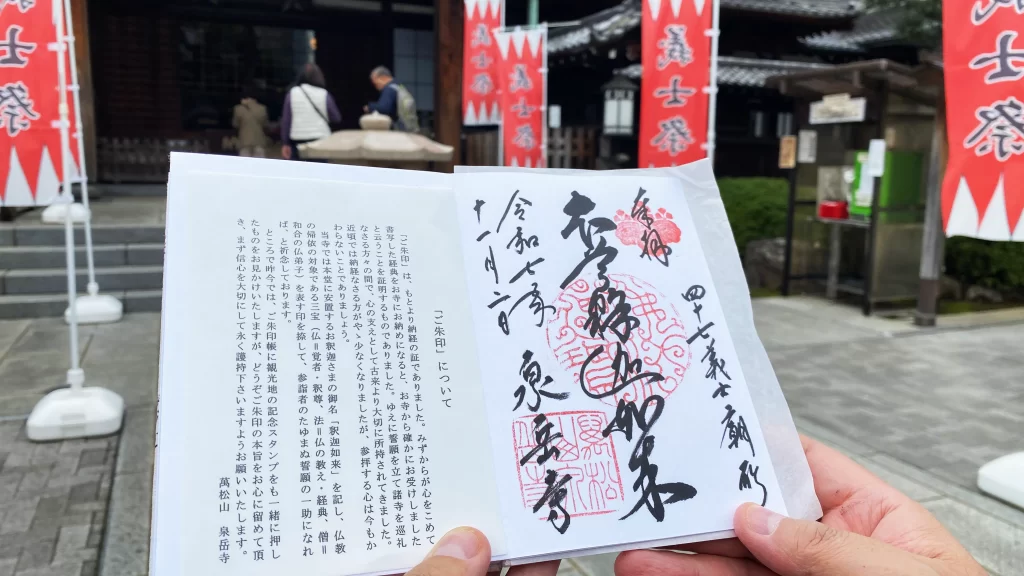 奉拝
四十七義士廟所
本尊釈迦如来
令和七年
十一月二日
泉岳寺
「ご朱印」について
「ご朱印」は、もとより納経の証でありました。みずからが心をこめて
書写した経典をお寺にお納めになると、お寺から確かにお受けしました
と云うことを証明するものでありました。ゆえに誓願を立て諸寺を巡礼
なさる方々の間で、心の支えとして古来より大切に所持されてきました。
近頃では納経なさる方がやゝ少なくなりましたが、参拝する心は今もか
わらないことでありましょう。
当寺では本堂に安置するお釈迦さまの御名「釈迦如来」を記し、仏教
の帰依の対象である三宝（仏＝覚者・釈尊、法＝仏の教え・経典、僧＝
和合の仏弟子）を表す印を捺して、参詣者のたゆまぬ誓願の一助になれ
ば、と祈念しております。
ところで昨今では、ご朱印帳に観光地の記念スタンプをも一緒に押し
たものをお見かけいたしますが、どうぞご朱印の本旨をお心に留めて頂
き、まず信心を大切にして永く護持下さいますようお願いいたします。
萬松山　泉岳寺
義士祭
義士祭
義士祭
義士祭
義士祭